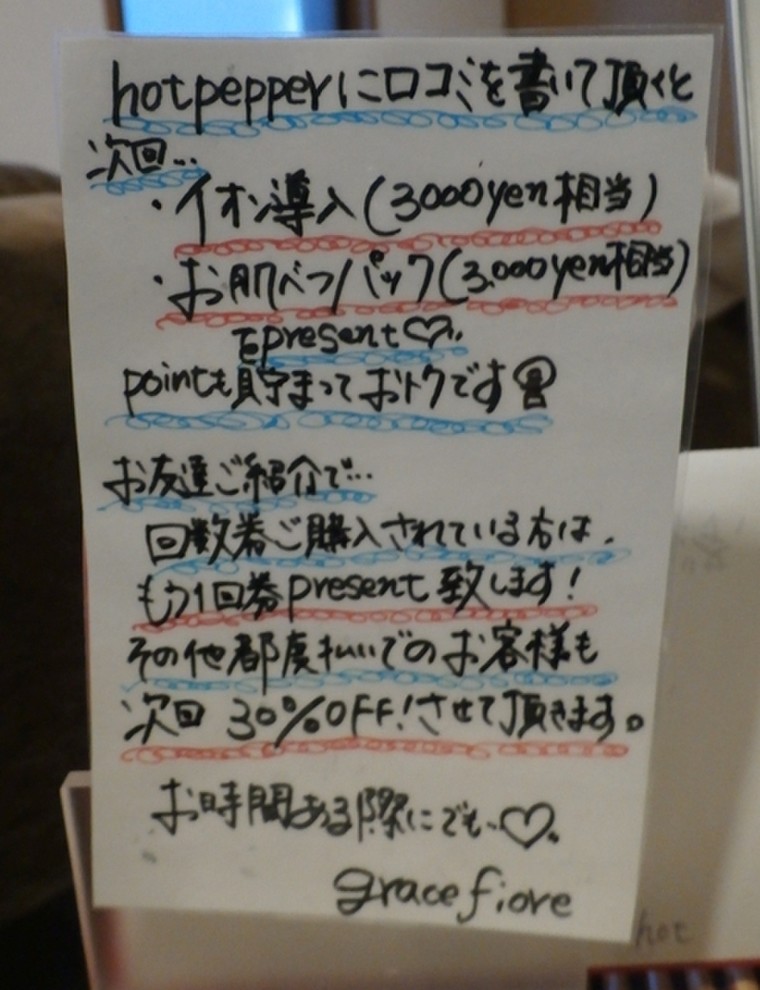 hotpepperに口コミを書いて頂くと
次回...
・イオン導入(3000yen相当)
・お肌ぺフパック(3,000yen相当)
をpresent♡..
pointも貯まっておトクです
お友達ご紹介で...
回数券ご購入されている方は、
もう1回券present致します!
その他都度払いでのお客様も
次回 30%OFF!させて頂きます。
お時間ある際にでも..♡.
grace fiore
hot